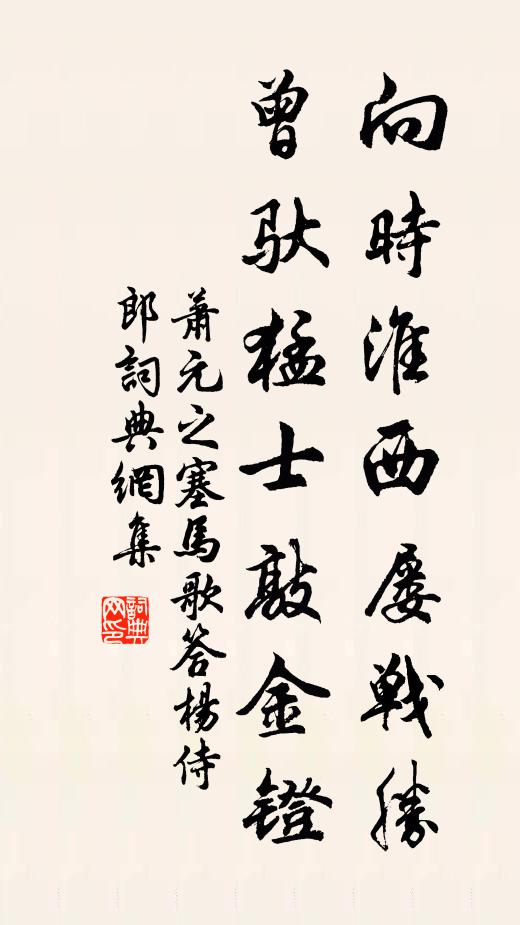 向時淮西屢戰勝
曾馱猛士敲金鐙
蕭元之塞馬歌答楊侍
郎詞典網集
詞典
网印